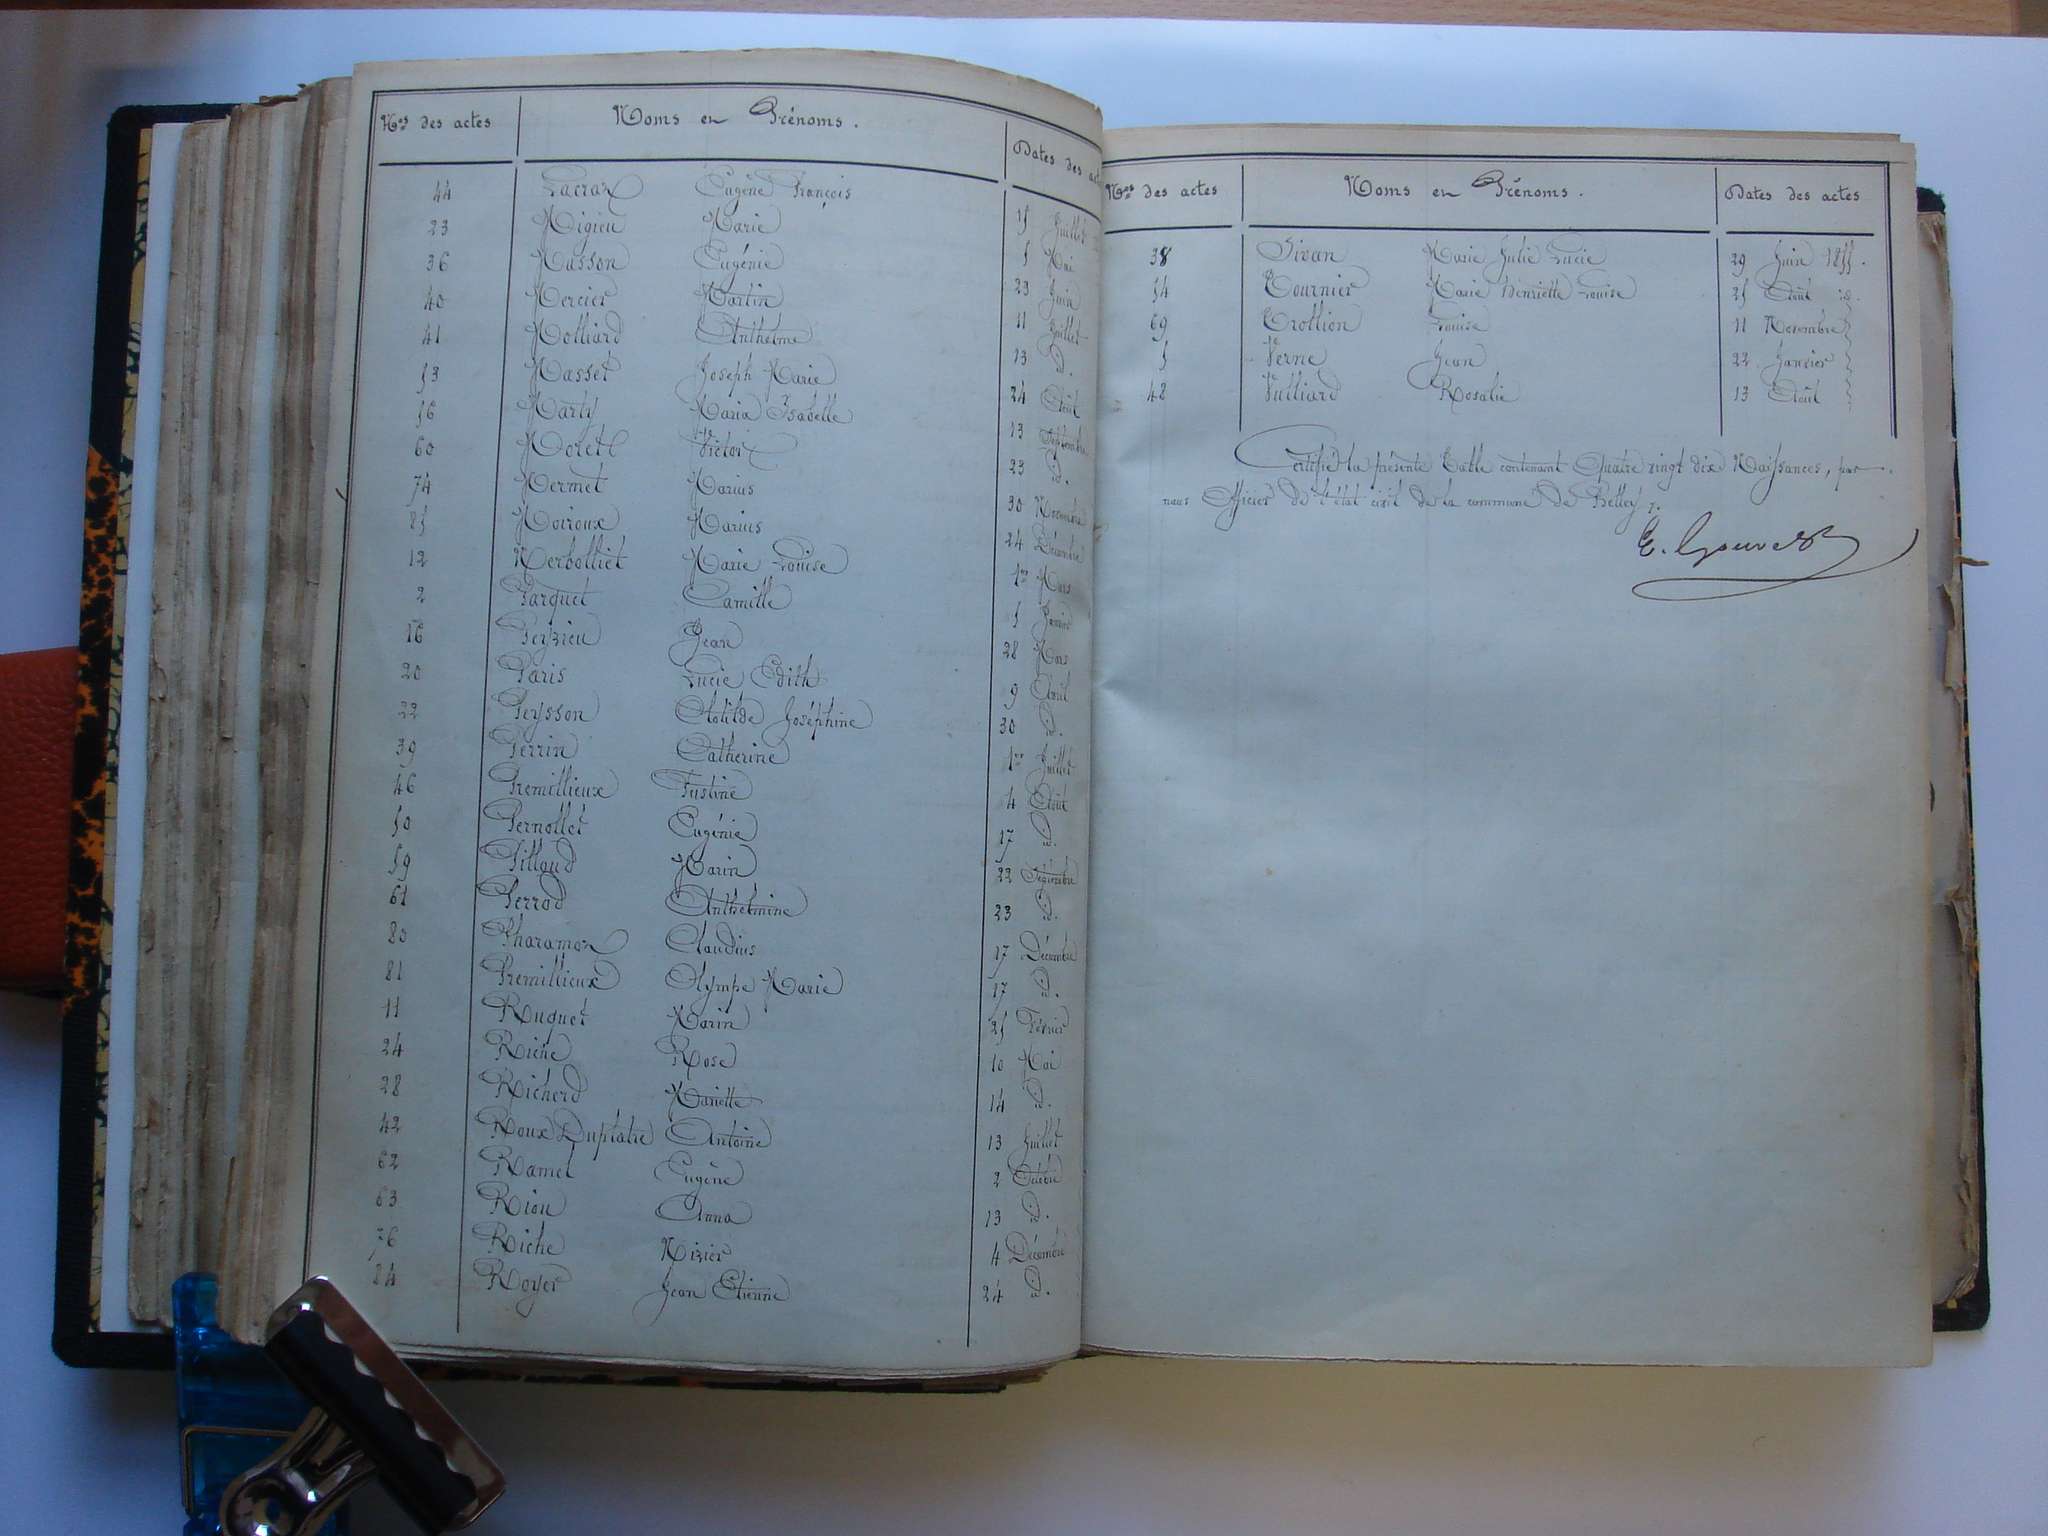 Nos des actes Noms et Prénoms. Dates des act
44 Lacroix Eugène François 15 Juillet
23 Migieu Marie 5 Mai
36 Masson Eugénie 23 Juin
40 Mercier Martin 11 Juillet
41 Molliard Anthelme 13 d.
53 Masset Joseph Marie 24 Août
56 Marty Maria Isabelle 13 Septembre
60 Morel Victor 23 d.
74 Mermet Marius 30 Novembre
85 Moiroux Marius 24 Décembre
12 Nerbolliet Marie Louise 1er Mars
2 Parquet Camille 5 Janvier
16 Peyzieu Jean 28 Mars
20 Paris Lucie Edith 9 Avril
22 Peysson Clotilde Joséphine 30 d.
39 Perrin Catherine 1er Juillet
46 Premillieux Fustine 4 Août
50 Pernollet Eugénie 17 d.
59 Pilloud Marin 22 Septembre
61 Perrod Anthelmine 23 d.
80 Pharamon Claudius 17 Décembre
81 Premillieux Olympe Marie 17 d.
11 Ruguet Marin 25 Février
24 Riche Rose 10 Mai
28 Richerd Mariette 14 d.
42 Roux Duplatre Antoine 13 Juillet
62 Ramel Eugène 2 Octobre
63 Rion Anna 13 d.
76 Riche Nizier 4 Décembre
84 Royer Jean Etienne 24 d.
Nos des actes Noms et Prénoms. Dates des actes
38 Sivan Marie Julie Lucie 29 Juin 1855.
54 Tournier Marie Henriette Louise 25 Août id.
69 Trollion Louise 11 Novembre
5 Verne Jean 22 Janvier
48 Vulliard Rosalie 13 Août
Certifié la présente Table contenant Quatre vingt dix Naissances, par
nous Officier de l'état civil de la commune de Belley.